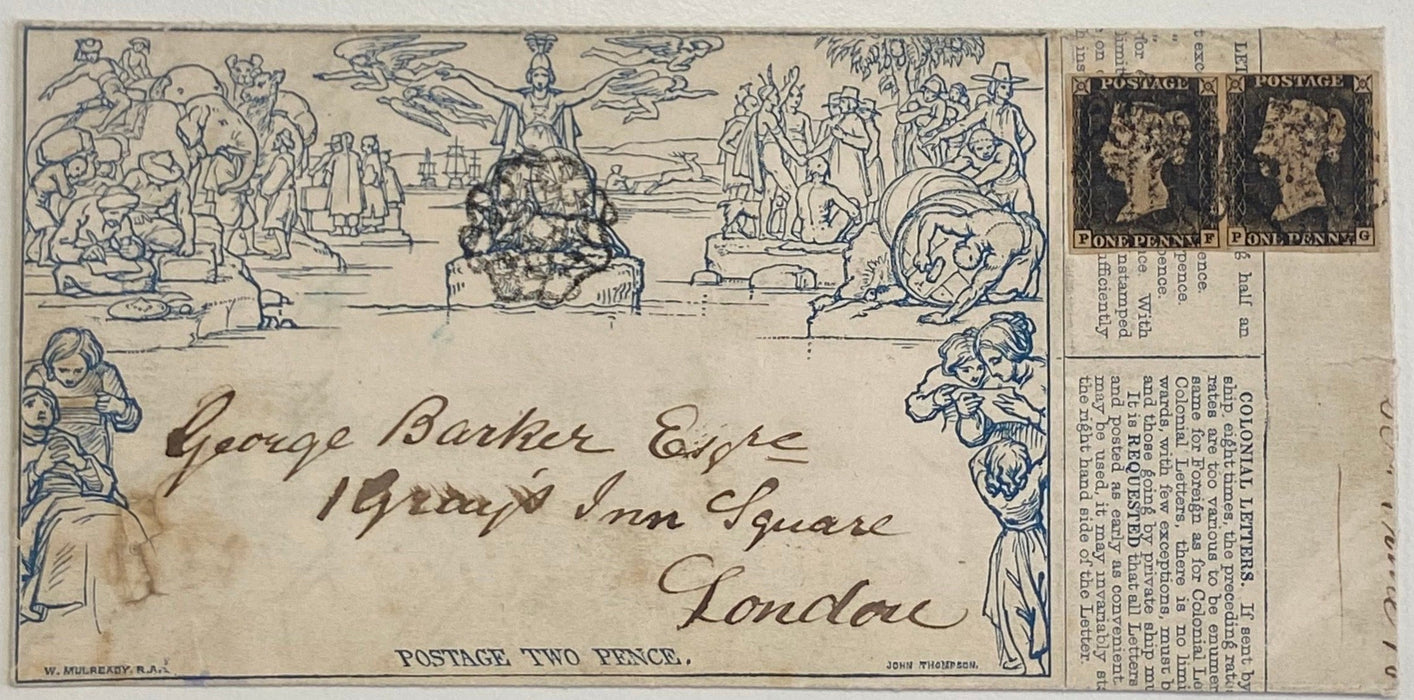 George Barker Esqre
1 Gray's Inn Square
London
POSTAGE TWO PENCE.
W. MULREADY. R.A.
JOHN THOMPSON.
POSTAGE
P ONE PENNY F
POSTAGE
P ONE PENNY G
half an
ence.
pence.
pence
nce. With
nstamped
ufficiently
COLONIAL LETTERS. If sent by
ship, eight times, the preceding rate
rates are too various to be enumer
same for Foreign as for Colonial Le
Colonial Letters, there is no limi
wards, with few exceptions, must b
and those going by private ship mu
It is REQUESTED that all Letters
and posted as early as convenient
may be used, it may invariably sta
the right hand side of the Letter.